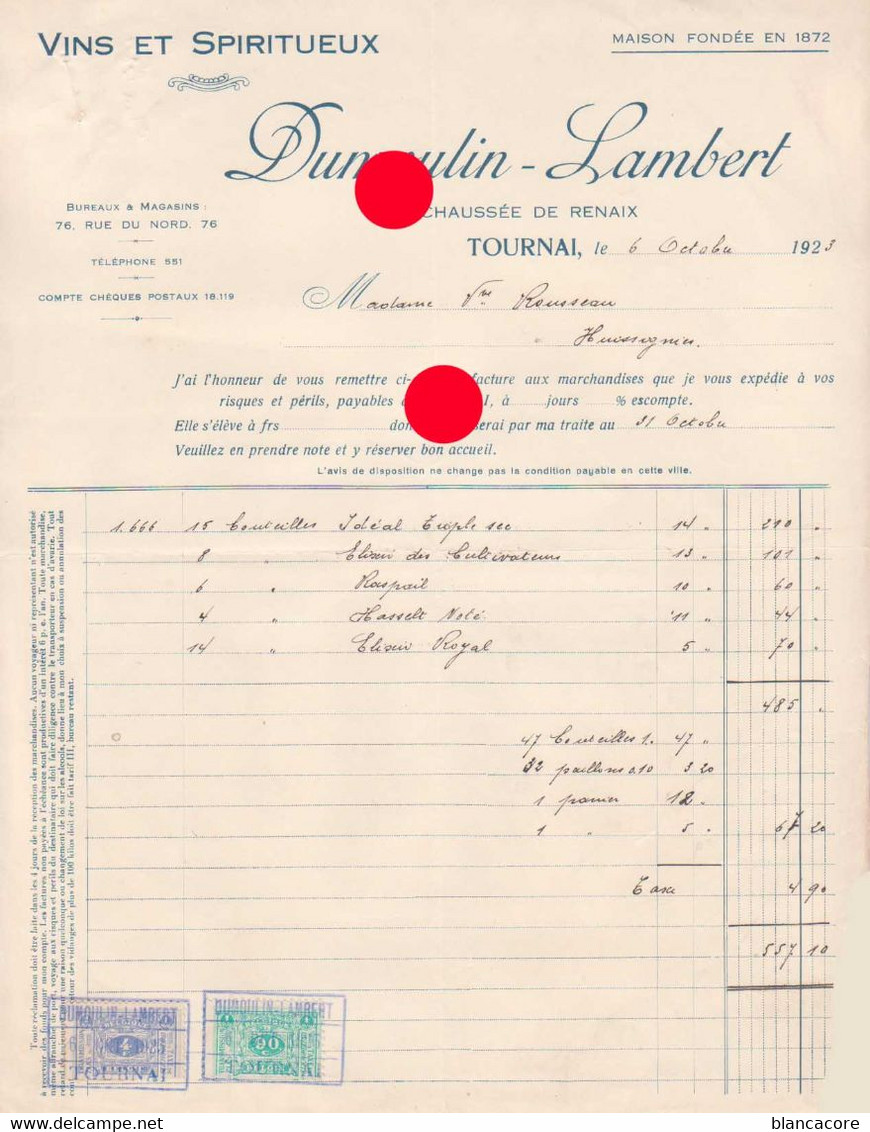 VINS ET SPIRITUEUX
MAISON FONDÉE EN 1872
Dumoulin-Lambert
BUREAUX & MAGASINS :
76, RUE DU NORD, 76
TÉLÉPHONE 551
COMPTE CHÈQUES POSTAUX 18.119
CHAUSSÉE DE RENAIX
TOURNAI, le 6 Octobre 1923
Madame Vve Rousseau
Huissignies.
J'ai l'honneur de vous remettre ci- facture aux marchandises que je vous expédie à vos
risques et périls, payables à jours % escompte.
Elle s'élève à frs serai par ma traite au 31 Octobre
Veuillez en prendre note et y réserver bon accueil.
L'avis de disposition ne change pas la condition payable en cette ville.
1.666 15 bouteilles Idéal Triple sec 14 " 210 "
8 " Elixir des Cultivateurs 13 " 101 "
6 " Raspail 10 " 60 "
4 " Hasselt Voté 11 " 44 "
14 " Elixir Royal 5 " 70 "
485 "
47 bouteilles 1. 47 "
32 paillons 0.10 3 20
1 panier 12 "
1 " 5 " 67 20
Taxe 4 90
557 10
Toute réclamation doit être faite dans les 4 jours de la réception des marchandises. Aucun voyageur ni représentant n'est autorisé
à recevoir des fonds pour mon compte. Les factures non payées à l'échéance sont productives d'un intérêt 6 p. c. l'an. Toute marchandise,
même affranchie de port, voyage aux risques et périls du destinataire qui doit faire diligence contre le transporteur en cas d'avarie. Tout
une raison quelconque ou changement de loi sur les alcools, donne lieu à mon choix à suspension ou annulation des
retour des vidanges de plus de 100 kilos doit être fait tarif III, bureau restant.
DUMOULIN-LAMBERT
4
TOURNAI
DUMOULIN-LAMBERT
90
blancacore